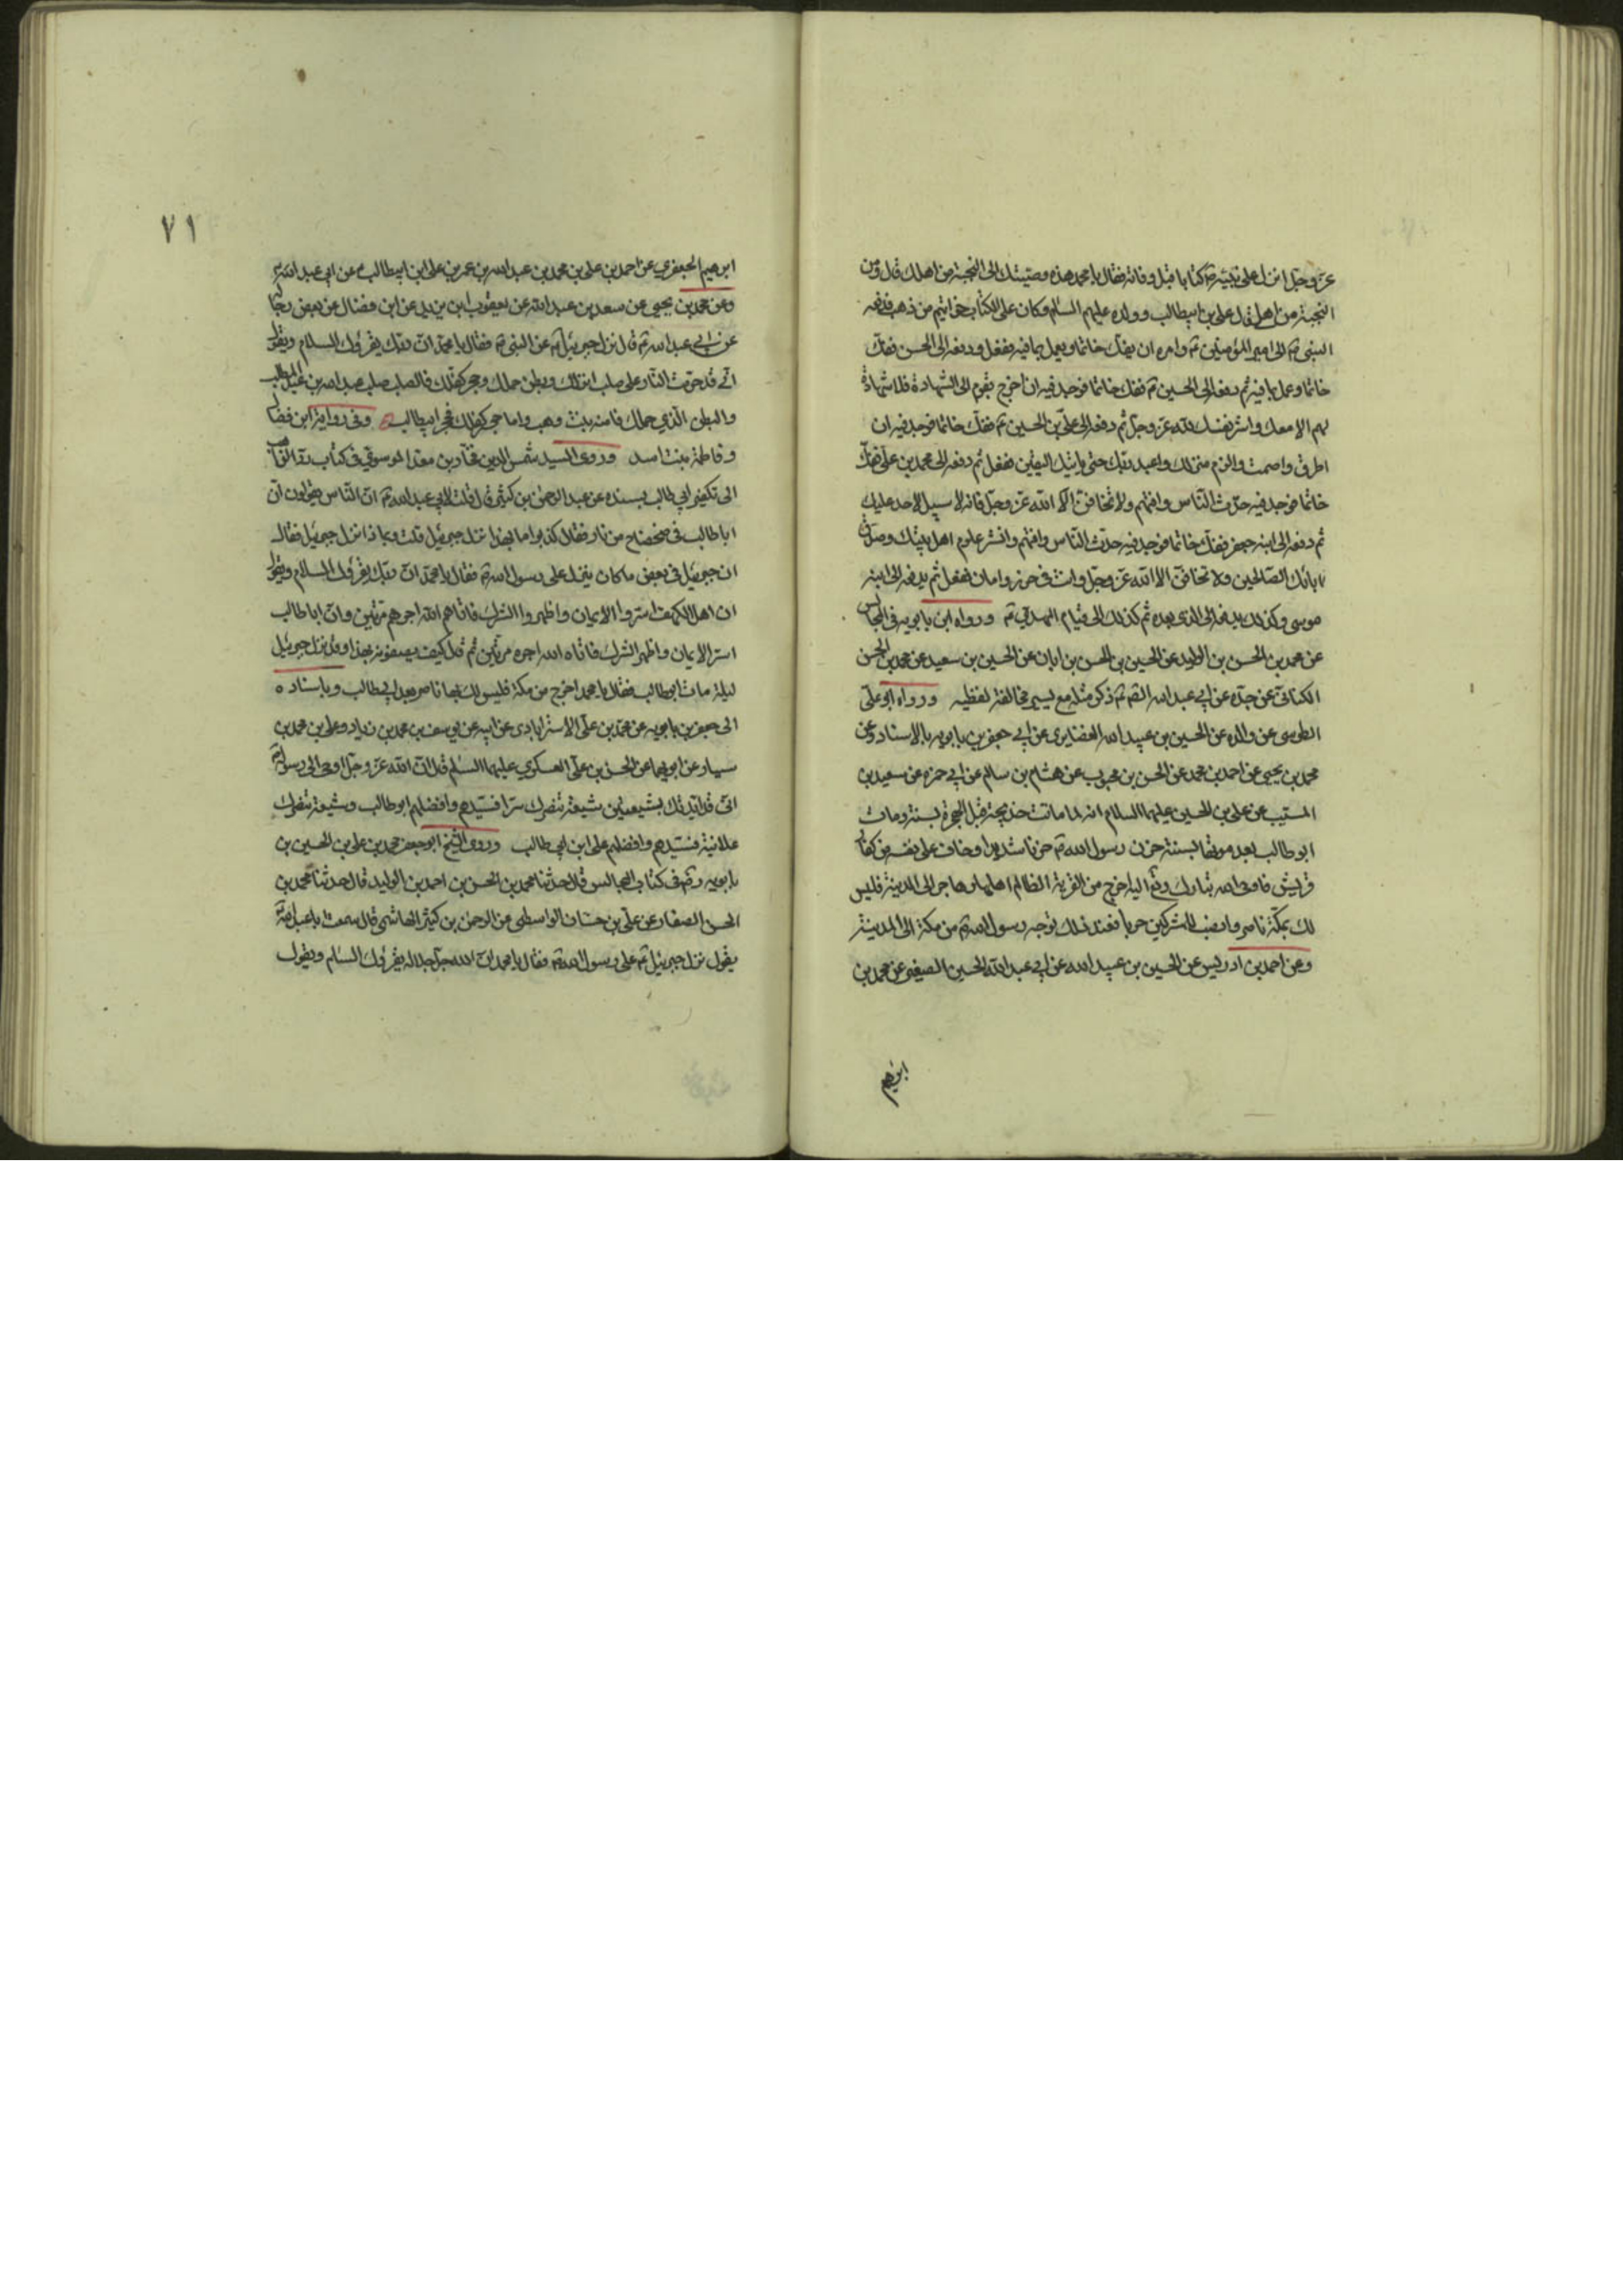 عز وجل انزل على نبيه ص كتابا قبل وفاته فقال يا محمد هذه وصيتك الى النجبة من اهلك قال ومن
النجبة من اهلي قال علي بن ابيطالب وولده عليهم السلام وكان على الكتاب خواتيم من ذهب فدفعه
النبي ص الى امير المؤمنين ع وامره ان يفك خاتما ويعمل بما فيه ففعل ودفعه الى الحسن ففك
خاتما وعمل بما فيه ثم دفعه الى الحسين ع ففك خاتما فوجد فيه ان اخرج بقوم الى الشهادة فلا شهادة
لهم الا معك واشتر نفسك لله عز وجل ثم دفعه الى علي بن الحسين ع ففك خاتما فوجد فيه ان
اطرق واصمت والزم منزلك واعبد ربك حتى ياتيك اليقين ففعل ثم دفعه الى محمد بن علي ففك
خاتما فوجد فيه حدث الناس وافتهم ولا تخافن الا الله عز وجل فانه لا سبيل لاحد عليك
ثم دفعه الى ابنه جعفر ففك خاتما فوجد فيه حدث الناس وافتهم وانشر علوم اهل بيتك وصدق
ابائك الصالحين ولا تخافن الا الله عز وجل وانت في حرز وامان ففعل ثم يدفعه الى ابنه
موسى وكذلك يدفعه الى الذي بعده ثم كذلك الى قيام المهدي ع ورواه ابن بابويه في المجالس
عن محمد بن الحسن بن الوليد عن الحسين بن الحسن بن ابان عن الحسين بن سعيد عن محمد بن الحسن
الكناني عن جده عن ابي عبد الله الصم ثم ذكر مثله مع يسير مخالفة لفظيه ورواه ابو علي
الطوسي عن والده عن الحسين بن عبيد الله الغضايري عن ابي جعفر بن بابويه بالاسناد وعن
محمد بن يحيى عن احمد بن محمد عن الحسن بن محبوب عن هشام بن سالم عن ابي حمزه عن سعيد بن
المسيب عن علي بن الحسين عليهما السلام انه لما ماتت خديجة قبل الهجرة بسنة ومات
ابو طالب بعد موتها بسنة حزن رسول الله ص حزنا شديدا وخاف على نفسه من كفار
قريش فاوحى الله تبارك وتع اليه اخرج من القرية الظالم اهلها وهاجر الى المدينة فليس
لك بمكة ناصر وانصب للمشركين حربا فعند ذلك توجه رسول الله ص من مكة الى المدينة
وعن احمد بن ادريس عن الحسين بن عبيد الله عن ابي عبد الله الحسين الصغير عن محمد بن
ابرهيم
٧١
ابرهيم الجعفري عن احمد بن علي بن محمد بن عبد الله بن عمر بن علي ابن ابيطالب ع عن ابي عبد الله ع
وعن محمد بن يحيى عن سعد بن عبد الله عن يعقوب ابن يزيد عن ابن فضال عن بعض رجاله
عن ابي عبد الله ع قال نزل جبرئيل ع عن النبي ص فقال يا محمد ان ربك يقرؤك السلام ويقول
اني قد حرمت النار على صلب انزلك وبطن حملك وحجر كفلك فالصلب صلب عبد الله بن عبد المطلب
والبطن الذي حملك فامنه بنت وهب واما حجر كفلك فحجر ابيطالب وفي رواية ابن فضال
وفاطمة بنت اسد وروى السيد شمس الدين فخار بن معد الموسوي في كتاب رد الذاهب
الى تكفير ابي طالب بسنده عن عبد الرحمن بن كثير قال قلت لابي عبد الله ع ان الناس يقولون ان
ابا طالب في ضحضاح من نار فقال كذبوا ما بهذا نزل جبرئيل قلت وبماذا نزل جبرئيل فقال
ان جبرئيل في بعض ما كان ينزل على رسول الله ص فقال يا محمد ان ربك يقرؤك السلام ويقول
ان اهل الكهف استروا الايمان واظهروا الشرك فاتاهم الله اجرهم مرتين وان ابا طالب
استر الايمان واظهر الشرك فاتاه الله اجره مرتين ثم قال كيف يصفونه بهذا وقد نزل جبرئيل
ليلة مات ابو طالب فقال يا محمد اخرج من مكة فليس لك بها ناصر بعد ابي طالب وباسناده
الى جعفر بن بابويه عن محمد بن علي الاسترابادي عن ابيه عن يوسف بن محمد بن زياد وعلي بن محمد بن
سيار عن ابويهما عن الحسن بن علي العسكري عليهما السلم قال ان الله عز وجل اوحى الى رسوله ص
اني قد ايدتك بشيعتين شيعة تنصرك سرا فسيدهم وافضلهم ابو طالب وشيعة تنصرك
علانية فسيدهم وافضلهم علي ابن ابي طالب وروى الشيخ ابو جعفر محمد بن علي بن الحسين بن
بابويه ره في كتاب المجالس قال حدثنا محمد بن الحسن بن احمد بن الوليد قال حدثنا محمد بن
الحسن الصفار عن علي بن حسان الواسطي عن الرحمن بن كثير الهاشمي قال سمعت با عبد الله ع
يقول نزل جبرئيل ع على رسول الله ص فقال يا محمد ان الله جل جلاله يقرؤك السلام ويقول